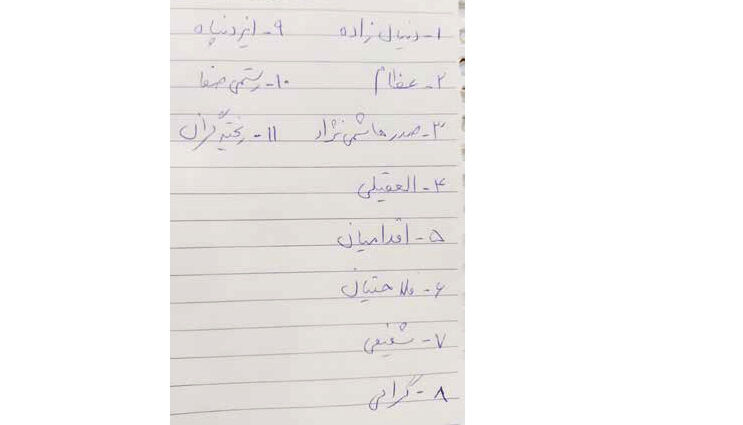 ۱- دنیال زاده
۲- عظام
۳- صدرهاشمی نژاد
۴- العقیلی
۵- اقدامیان
۶- فلاحتیان
۷- شفیعی
۸- گرامی
۹- ایزدپناه
۱۰- رستمی صفا
۱۱-